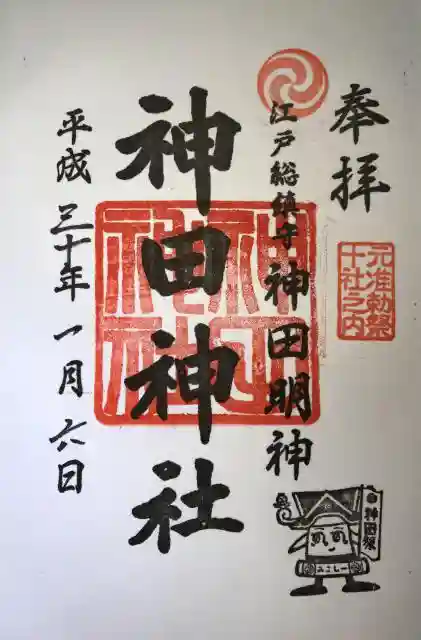 奉拝
元准勅祭
十社之内
江戸総鎮守 神田明神
神田神社
平成三十年一月六日
みこしー